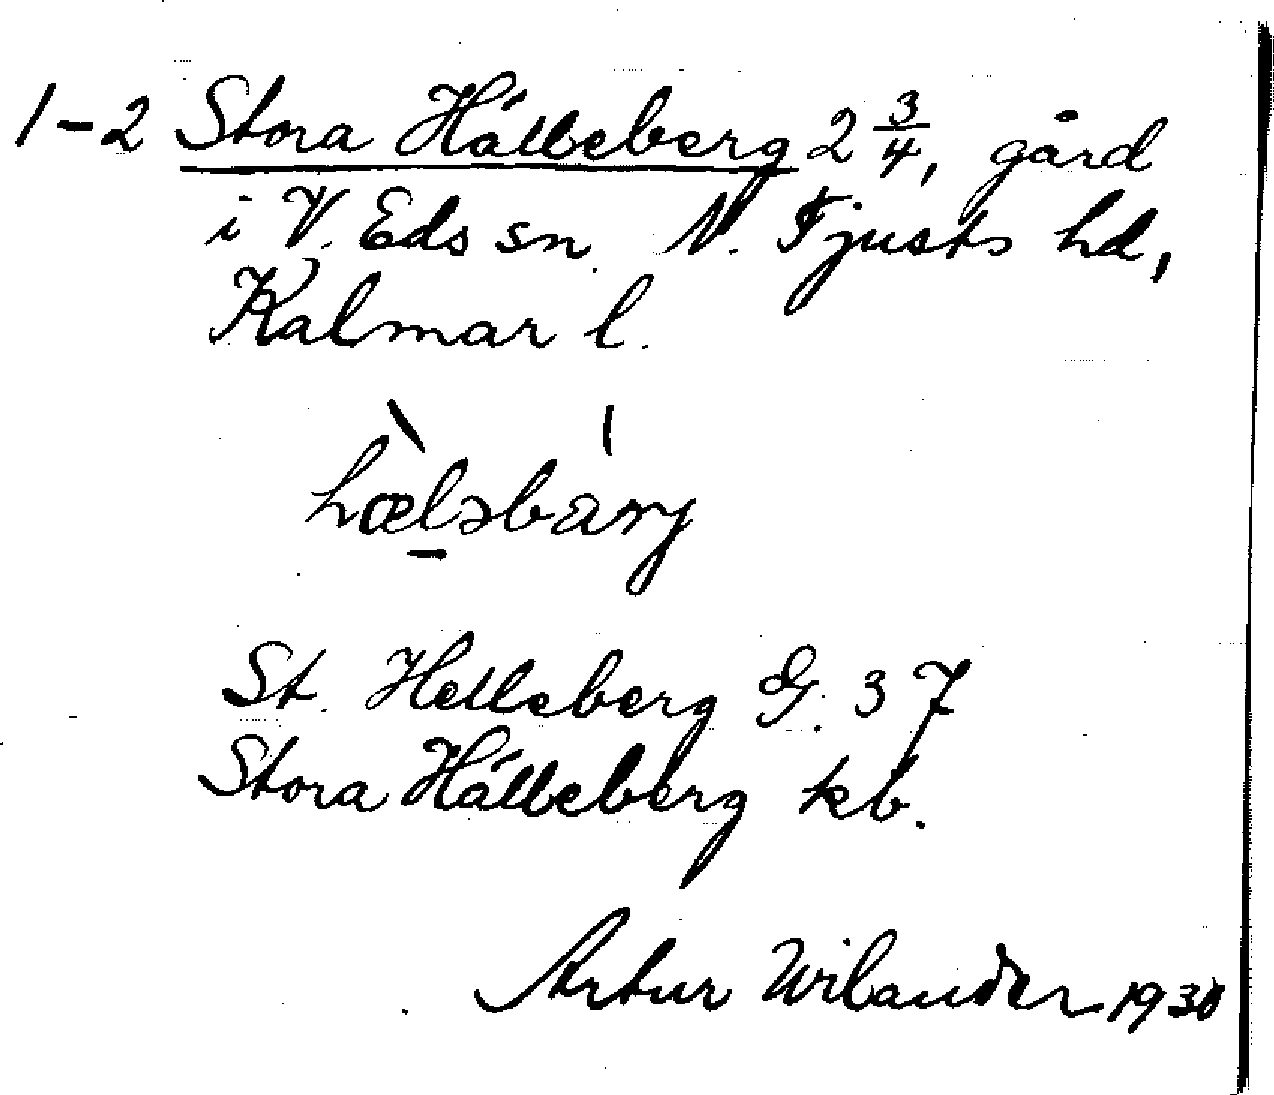 1-2 Stora Hälleberg 2 3/4, gård
i V. Eds sn. N. Tjusts hd,
Kalmar l.
St. Helleberg G. 37
Stora Hälleberg kb.
Artur Wilander 1930